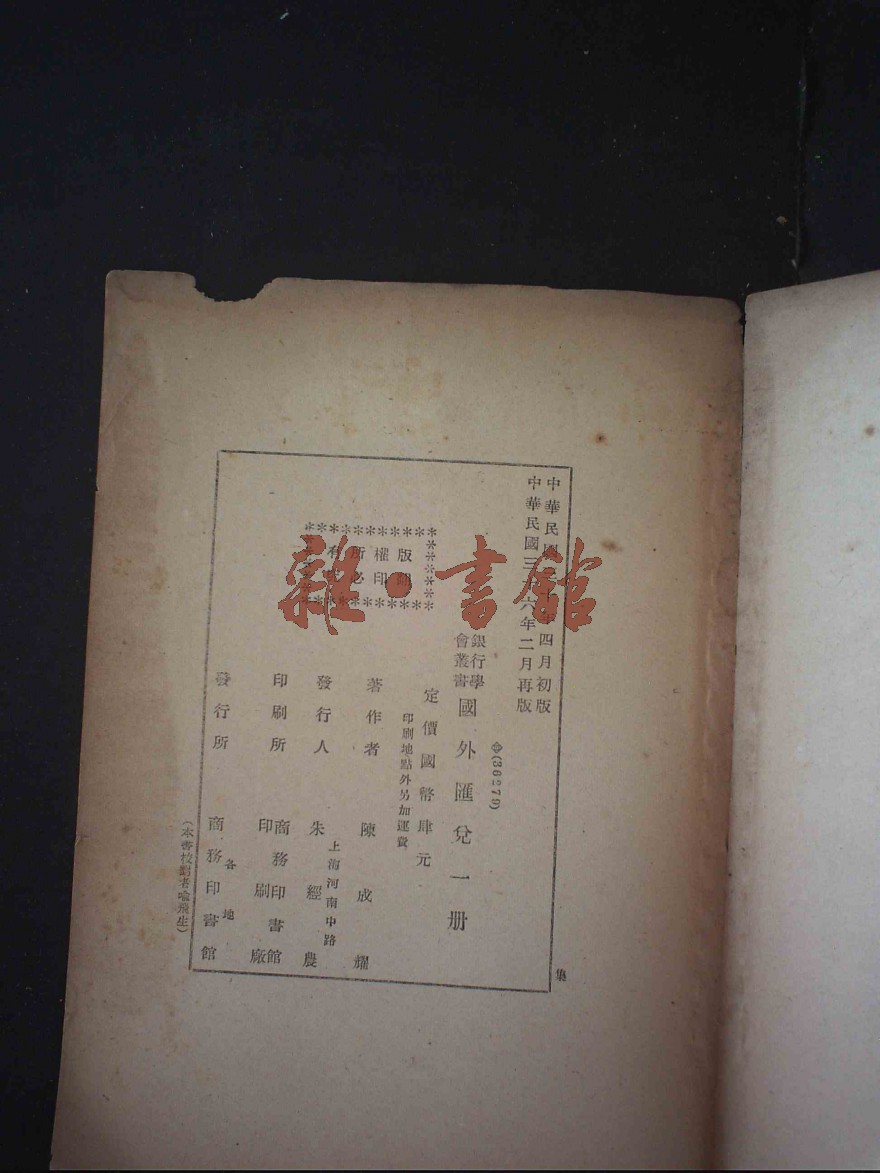 中華民國 四月初版
中華民國三十六年二月再版
(36279)
銀行學
會叢書
國外匯兌一册
定價國幣肆元
印刷地點外另加運費
版權所有
印必
著作者 陳成耀
上海河南中路
發行人 朱經農
印刷所 商務印書館
印刷廠
發行所 各地
商務印書館
(本書校對者喻飛生)
雜·書館